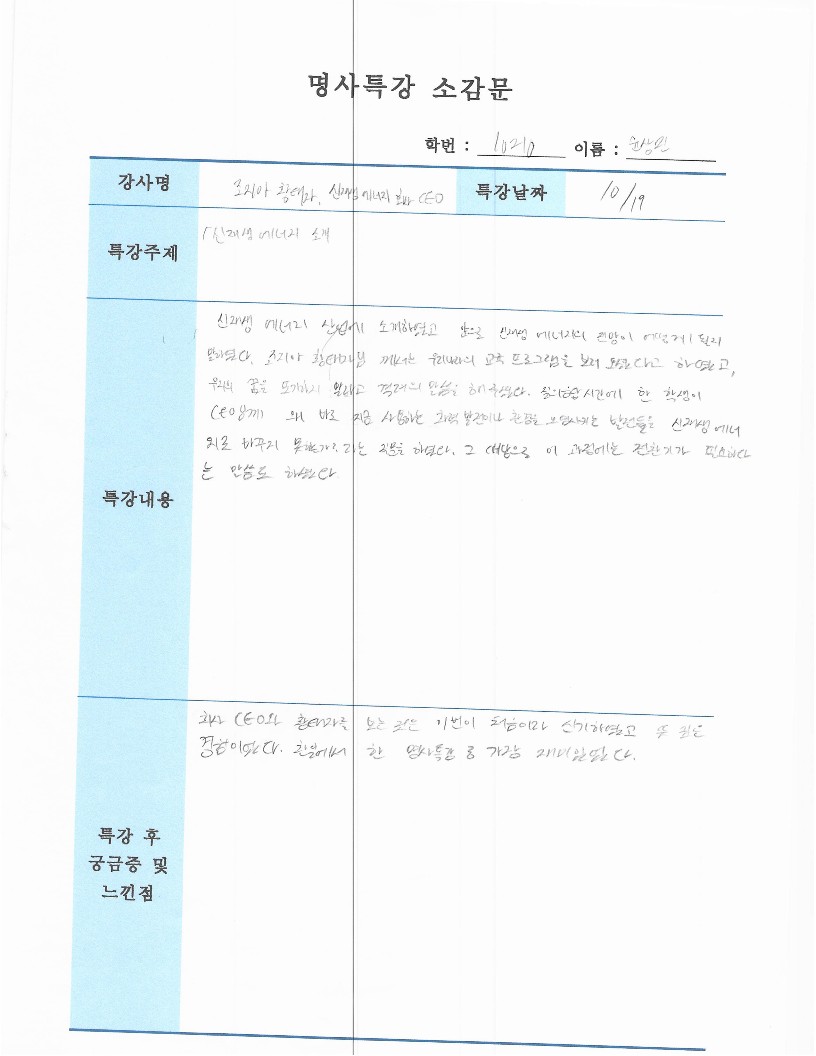 명사특강 소감문
학번 : 10210 이름 : 윤상원
강사명 조지아 황태자, 신재생 에너지 회사 CEO 특강날짜 10/19
특강주제 「신재생 에너지 소개
신재생 에너지 산업에 소개하였고 앞으로 신재생 에너지의 전망이 어떻게 될지
말하였다. 조지아 황태자님 께서는 우리나라의 교육 프로그램을 보러 오셨다고 하였고,
우리의 꿈을 포기하지 말라고 격려의 말씀을 해주셨다. 질의응답시간에 한 학생이
CEO님께 왜 바로 지금 사용하는 화력 발전이나 환경을 오염시키는 발전들을 신재생에너
지로 바꾸지 못하는가? 라는 질문을 하였다. 그 대답으로 이 과정에는 전환기가 필요하다
특강내용 는 말씀도 하였다.
회사 CEO와 황태자를 보는 것은 이번이 처음이라 신기하였고 뜻 깊은
경험이었다. 학교에서 한 명사특강 중 가장 재미있었다.
특강 후
궁금증 및
느낀점